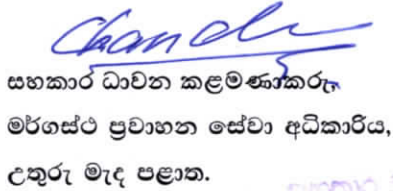 Chand
සහකාර ධාවන කළමණාකරු,
මර්ගස්ථ ප්‍රවාහන සේවා අධිකාරිය,
උතුරු මැද පළාත.